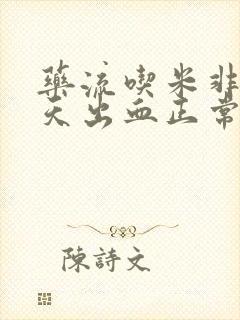 藥流喫米非
天出血正常
陳詩文